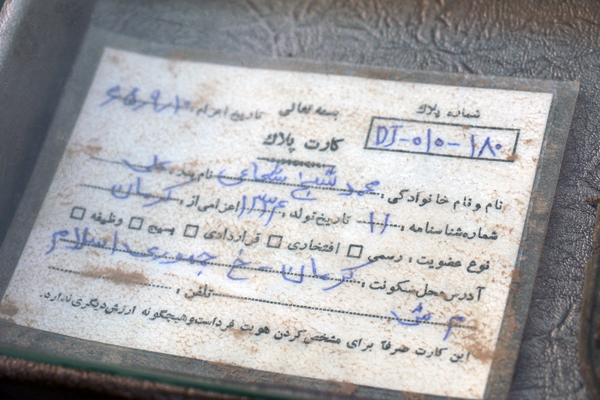 شماره پلاک
بسمه تعالی تاریخ اعزام:
DJ-۰۱۰-۱۸۰
کارت پلاک
نام و نام خانوادگی: محمد شیخ شعاعی نام پدر: علی
شماره شناسنامه: ۱۱ تاریخ تولد: ۱۳۴۶ اعزامی از: کرمان
نوع عضویت: رسمی □ افتخاری □ قراردادی □ بسیج □ وظیفه □
آدرس محل سکونت: کرمان - خ جمهوری اسلامی
م ش تلفن:
این کارت صرفا برای مشخص کردن هویت فرد است و هیچگونه ارزش دیگری ندارد.